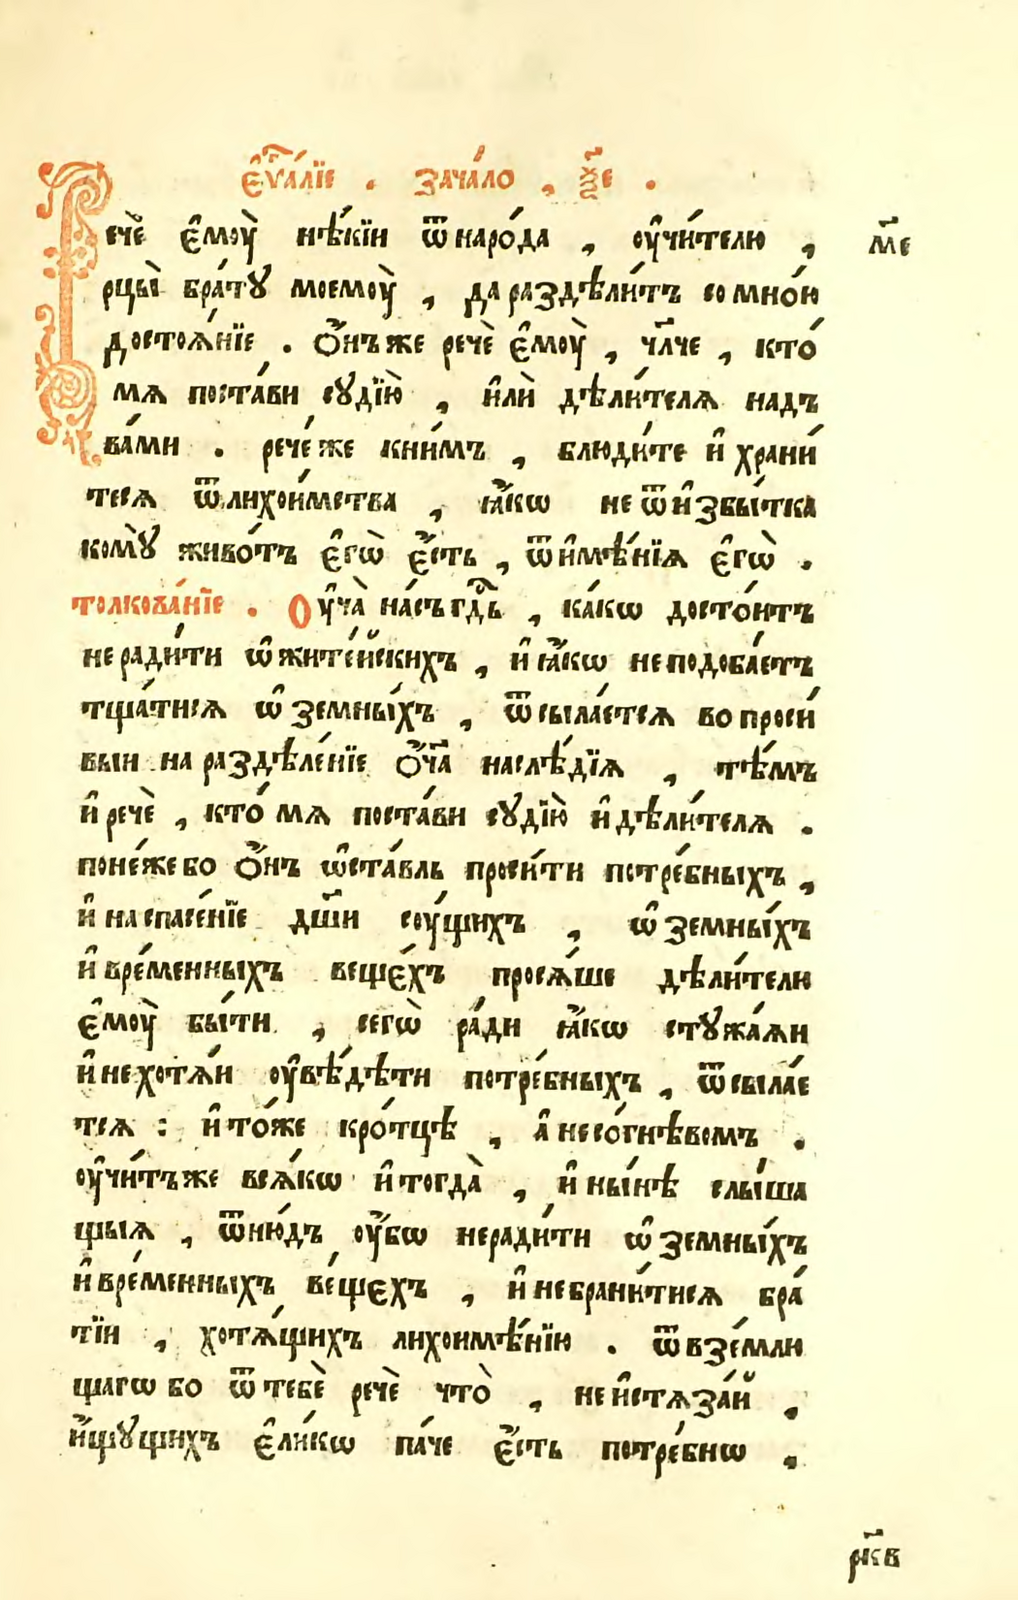 є҆ѵⷢ҇а́лїе . зача́ло , ѯ҃є .
Речѐ є҆моу̀ нѣ́кїи ѿ наро́да , оу҆чи́телю , м҃є
рцы̀ бра́тꙋ моемоу̀ , да раздѣли́тъ со мно́ю
достоѧ́нїе . О҆́нъ же речѐ є҆моу̀ , чл҃че , кто́
мѧ поста́ви сꙋдїю̀ , и҆лѝ дѣли́телѧ надъ
ва́ми . рече́ же к ни́мъ , блюди́те и҆ храни́
тесѧ ѿ лихои́мства , ꙗ҆́кѡ не ѿ и҆збы́тка
комꙋ̀ живо́тъ є҆гѡ̀ є҆́сть , ѿ и҆мѣ́нїѧ є҆гѡ̀ .
толкова́нїе . Оу҆ча̀ на́съ гдⷭ҇ь , ка́кѡ досто́итъ
не ради́ти ѡ҆ жите́йскихъ , и҆ ꙗ҆́кѡ не подоба́етъ
тща́тисѧ ѡ҆ земны́хъ , ѿсыла́етсѧ во проси́
выи на раздѣле́нїе о҆́ч҃а наслѣ́дїѧ , тѣ́мъ
и҆ речѐ , кто́ мѧ поста́ви сꙋдїю̀ и҆ дѣли́телѧ .
поне́же бо о҆́нъ ѡ҆ста́вль проси́ти потре́бныхъ ,
и҆ на спасе́нїе дш҃и соу́щихъ , ѡ҆ земны́хъ
и҆ вре́менныхъ веще́хъ просѧ́ше дѣли́телю
є҆моу̀ бы́ти , сегѡ̀ ра́ди ꙗ҆́кѡ стꙋжа́ѧи
и҆ не хотѧ́и оу҆вѣ́дѣти потре́бныхъ , ѿсыла́е
тсѧ : и҆ то́же кро́тцѣ , а҆ не со́ гнѣвомъ .
оу҆чи́тъ же всѧ́кѡ и҆ тогда̀ , и҆ ны́нѣ слы́ша
щыѧ , ѿню́дъ оу҆́бѡ неради́ти ѡ҆ земны́хъ
и҆ вре́менныхъ ве́щехъ , и҆ не брани́тисѧ бра́
тїи , хотѧ́щихъ лихоимѣ́нїю . ѿ взе́млю
щагѡ бо ѿ тебѐ речѐ что̀ , не и҆стѧза́й ,
и҆́щꙋщихъ є҆ли́кѡ па́че є҆́сть потре́бнѡ ,
рк҃в